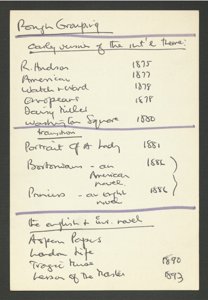 Rough Grouping
early versions of the int'l theme:
R. Hudson 1875
American 1877
Watch & Ward 1878
Europeans 1878
Daisy Miller
Washington Square 1880
transition
Portrait of A Lady 1881
Bostonians - an 1886
American
novel
Princess - an English 1886
novel
the english & Eur. novel
Aspern Papers
London Life
Tragic Muse 1890
Lesson of the Master 1892